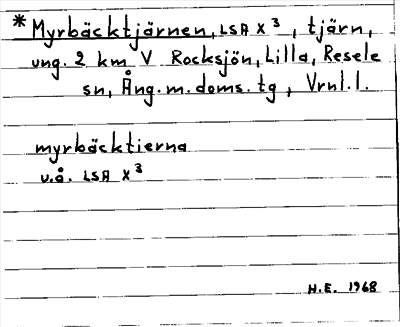 * Myrbäcktjärnen, LSA X 3, tjärn,
ung. 2 km V Rocksjön, Lilla, Resele
sn, Ång. m. doms. tg, Vrnl. l.
myrbäcktierna
v.å. LSA X 3
H.E. 1968